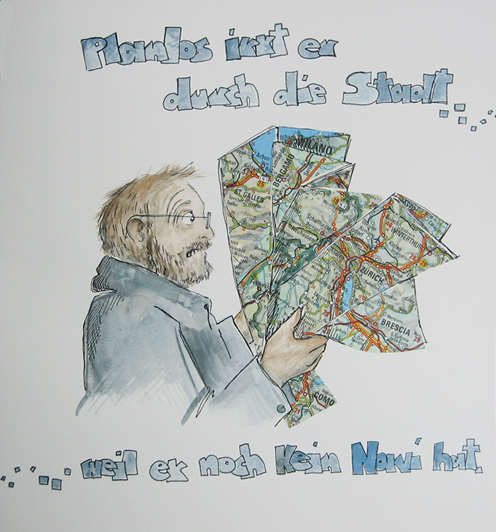 Planlos irrt er
durch die Stadt
MILANO
BERGAMO
ST.GALLEN
ZÜRICH
BRESCIA
COMO
... weil er noch kein Navi hat.